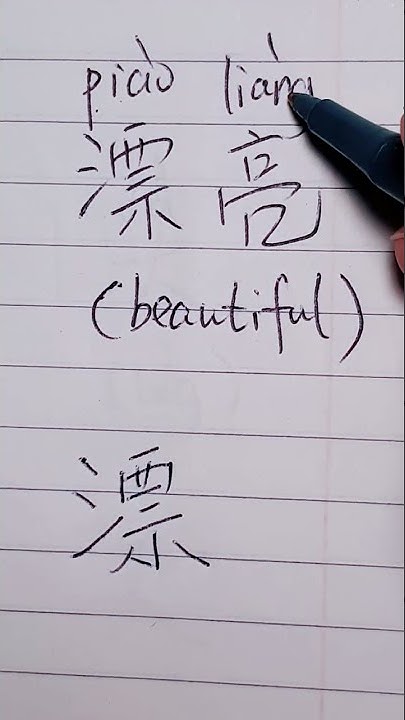 piào liàng
漂亮
(beautiful)
漂